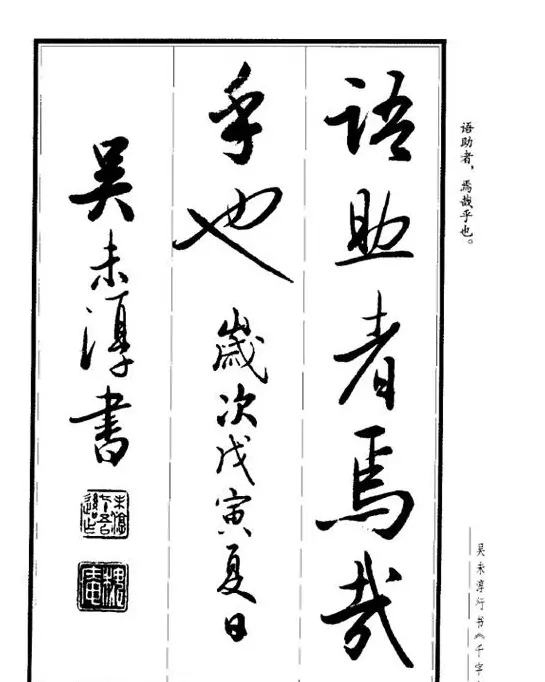 语助者，焉哉乎也。
語助者焉哉
乎也 歲次戊寅夏日
吴未淳書
吴未淳行书《千字